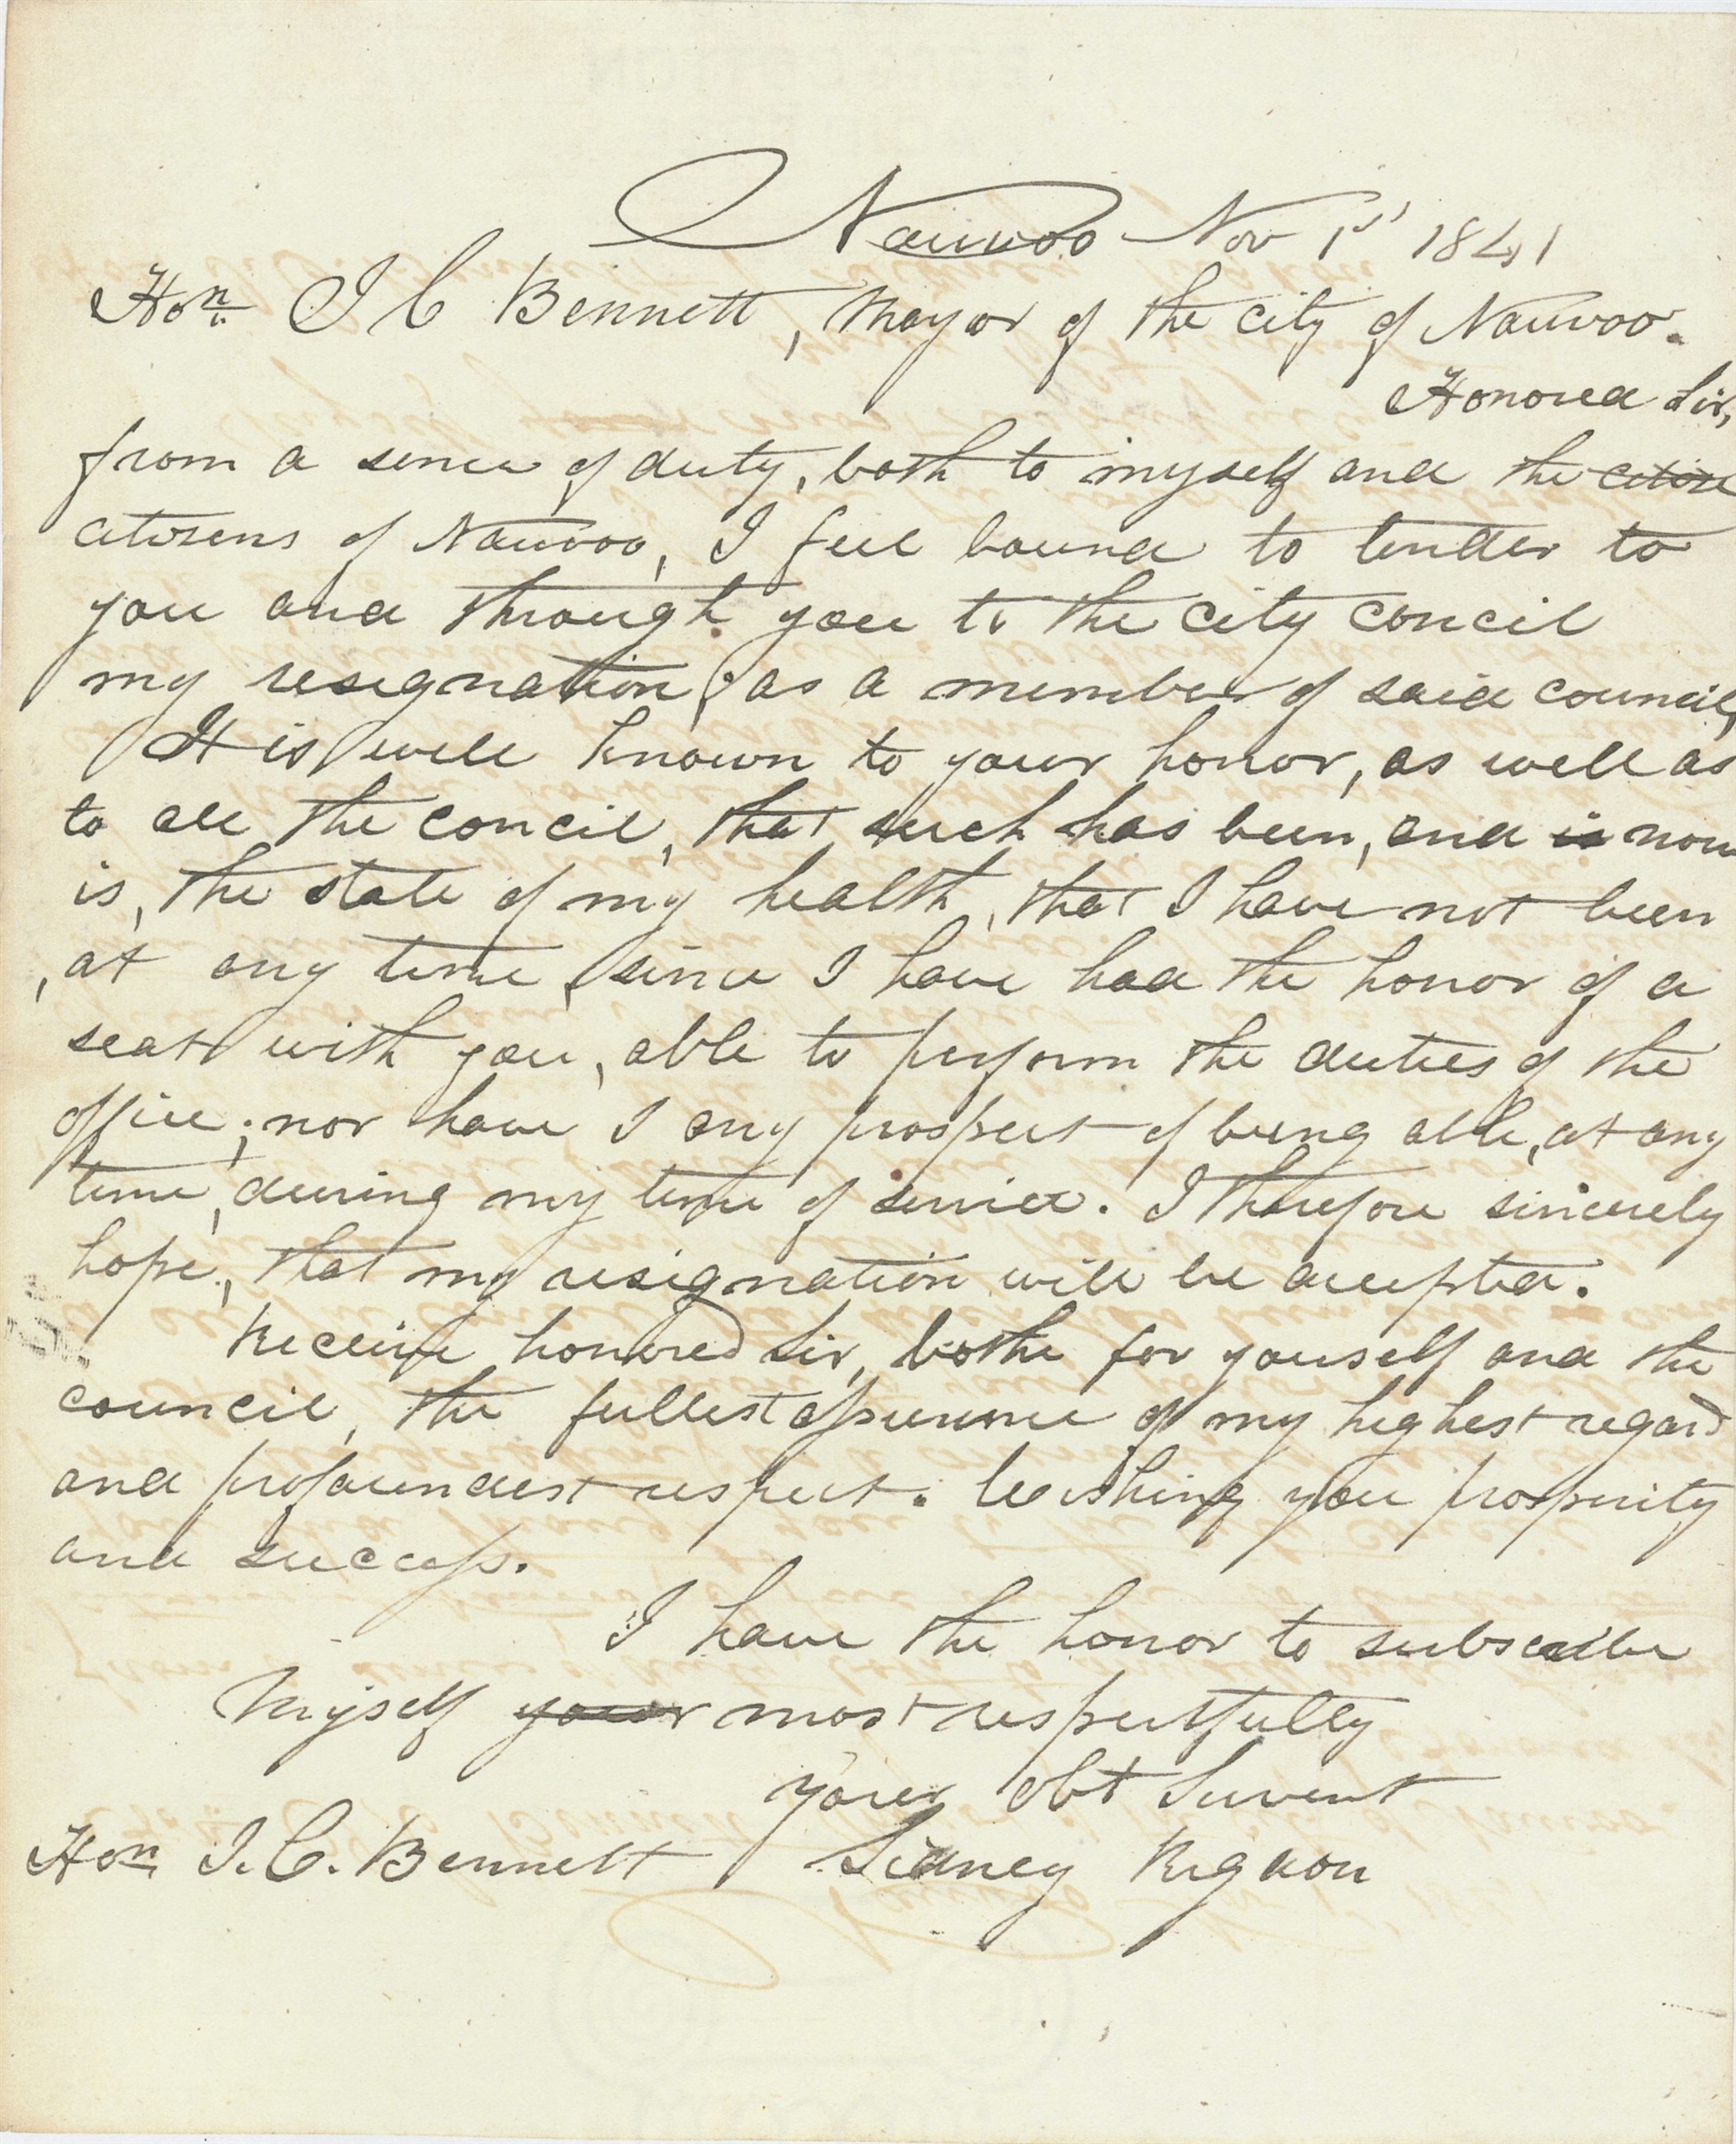 Nauvoo Nov 1st 1841
Hon. J C Bennett, Mayor of the city of Nauvoo.
Honored Sir,
from a sence of duty, both to myself and the citize
citizens of Nauvoo, I feel bound to tender to
you and through you to the city concil
my resignation, as a member of said council,
It is well known to your honor, as well as
to all the concil, that such has been, and is now
is, the state of my health, that I have not been
, at any time, since I have had the honor of a
seat with you, able to perform the duties of the
office; nor have I any prospect of being able, at any
time, during my time of service. I therefore sincerely
hope, that my resignation will be accepted.
Receive honored Sir, bothe for youself and the
council, the fullest assurence of my highest regard
and profoundest respect. Wishing you prosperity
and success.
I have the honor to subscribe
Myself your most respectfully
Your obt Servent
Hon. J. C. Bennett Sidney Rigdon